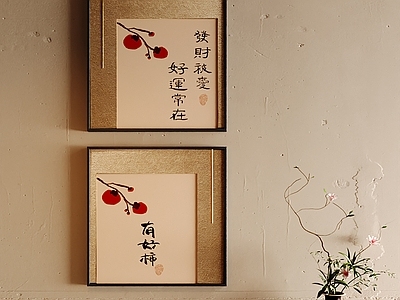 發財被愛
好運常在
有好柿